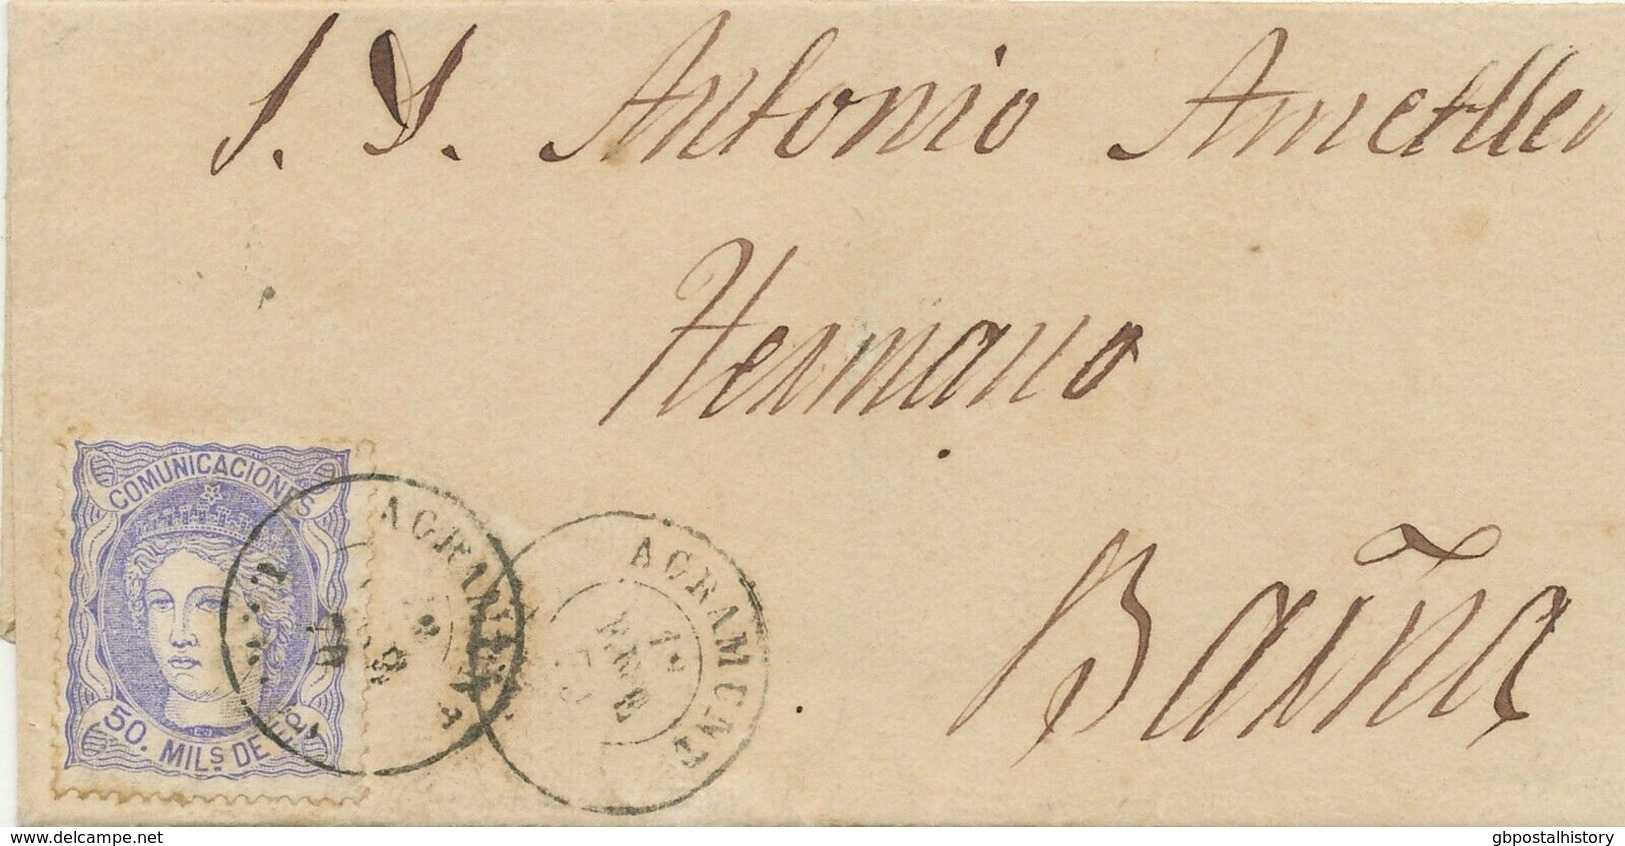 S. D. Antonio Ametller
Hermano
Barña
COMUNICACIONES
50. MILS. DE ESC.
AGRAMUNT
AGRAMUNT
1º
ENE
www.delcampe.net
gbpostalhistory